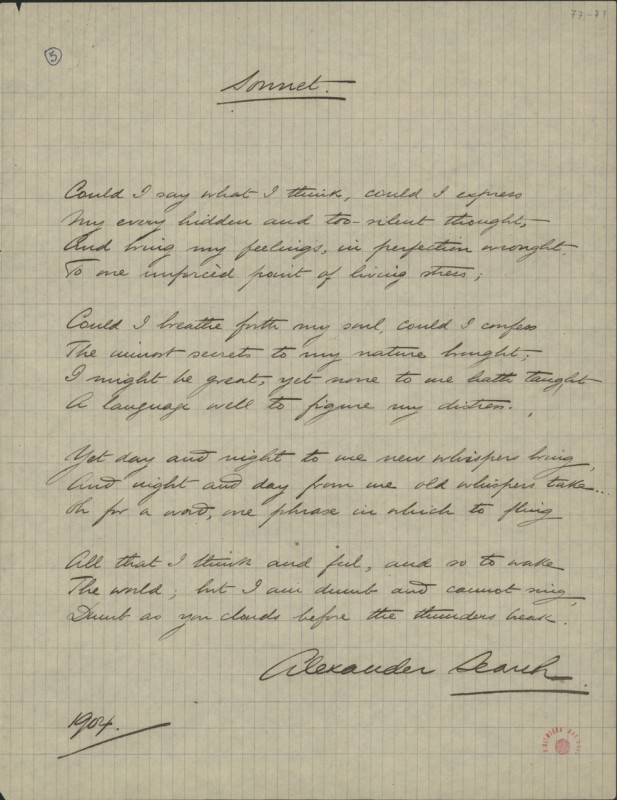 77-71
5
Sonnet.
Could I say what I think, could I express
My every hidden and too-silent thought,
And bring my feelings, in perfection wrought,
To one unforced point of living stress;
Could I breathe forth my soul, could I confess
The inmost secrets to my nature brought;
I might be great, yet none to me hath taught
A language well to figure my distress.
Yet day and night to me new whispers bring,
And night and day from me old whispers take...
Oh for a word, one phrase in which to fling
All that I think and feel, and so to wake
The world; but I am dumb and cannot sing,
Dumb as yon clouds before the thunders break.
Alexander Search.
1904.